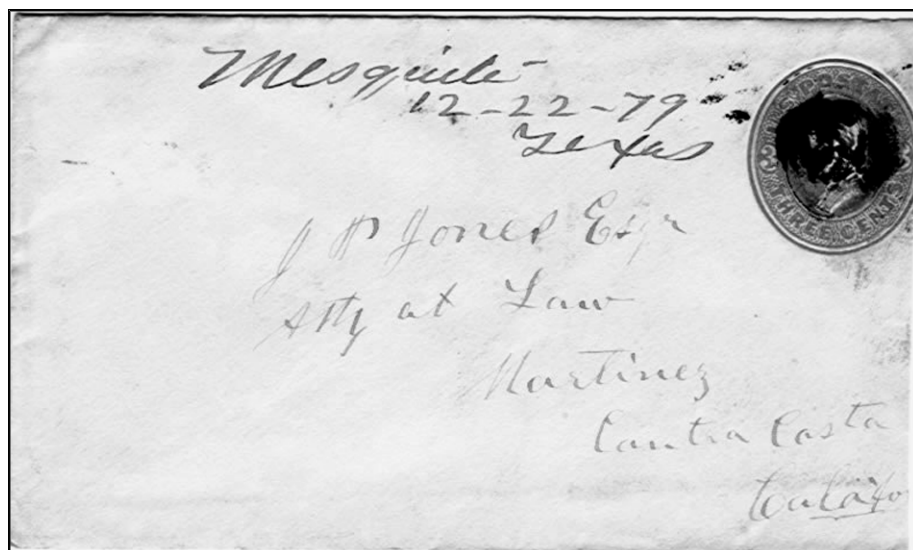 Mesquite
12-22-79
Texas
U.S. POSTAGE
THREE CENTS
J P Jones Esqr
Atty at Law
Martinez
Contra Costa